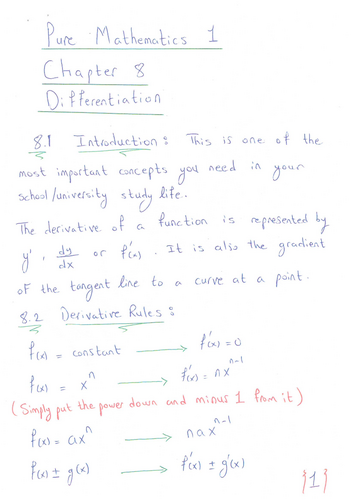 Pure Mathematics 1
Chapter 8
Differentiation
8.1 Introduction : This is one of the
most important concepts you need in your
School/university study life.
The derivative of a function is represented by
y', dy/dx or f'(x). It is also the gradient
of the tangent line to a curve at a point.
8.2 Derivative Rules :
f(x) = constant → f'(x) = 0
f(x) = x^n → f'(x) = nx^(n-1)
(Simply put the power down and minus 1 from it)
f(x) = ax^n → nax^(n-1)
f(x) ± g(x) → f'(x) ± g'(x)
{1}